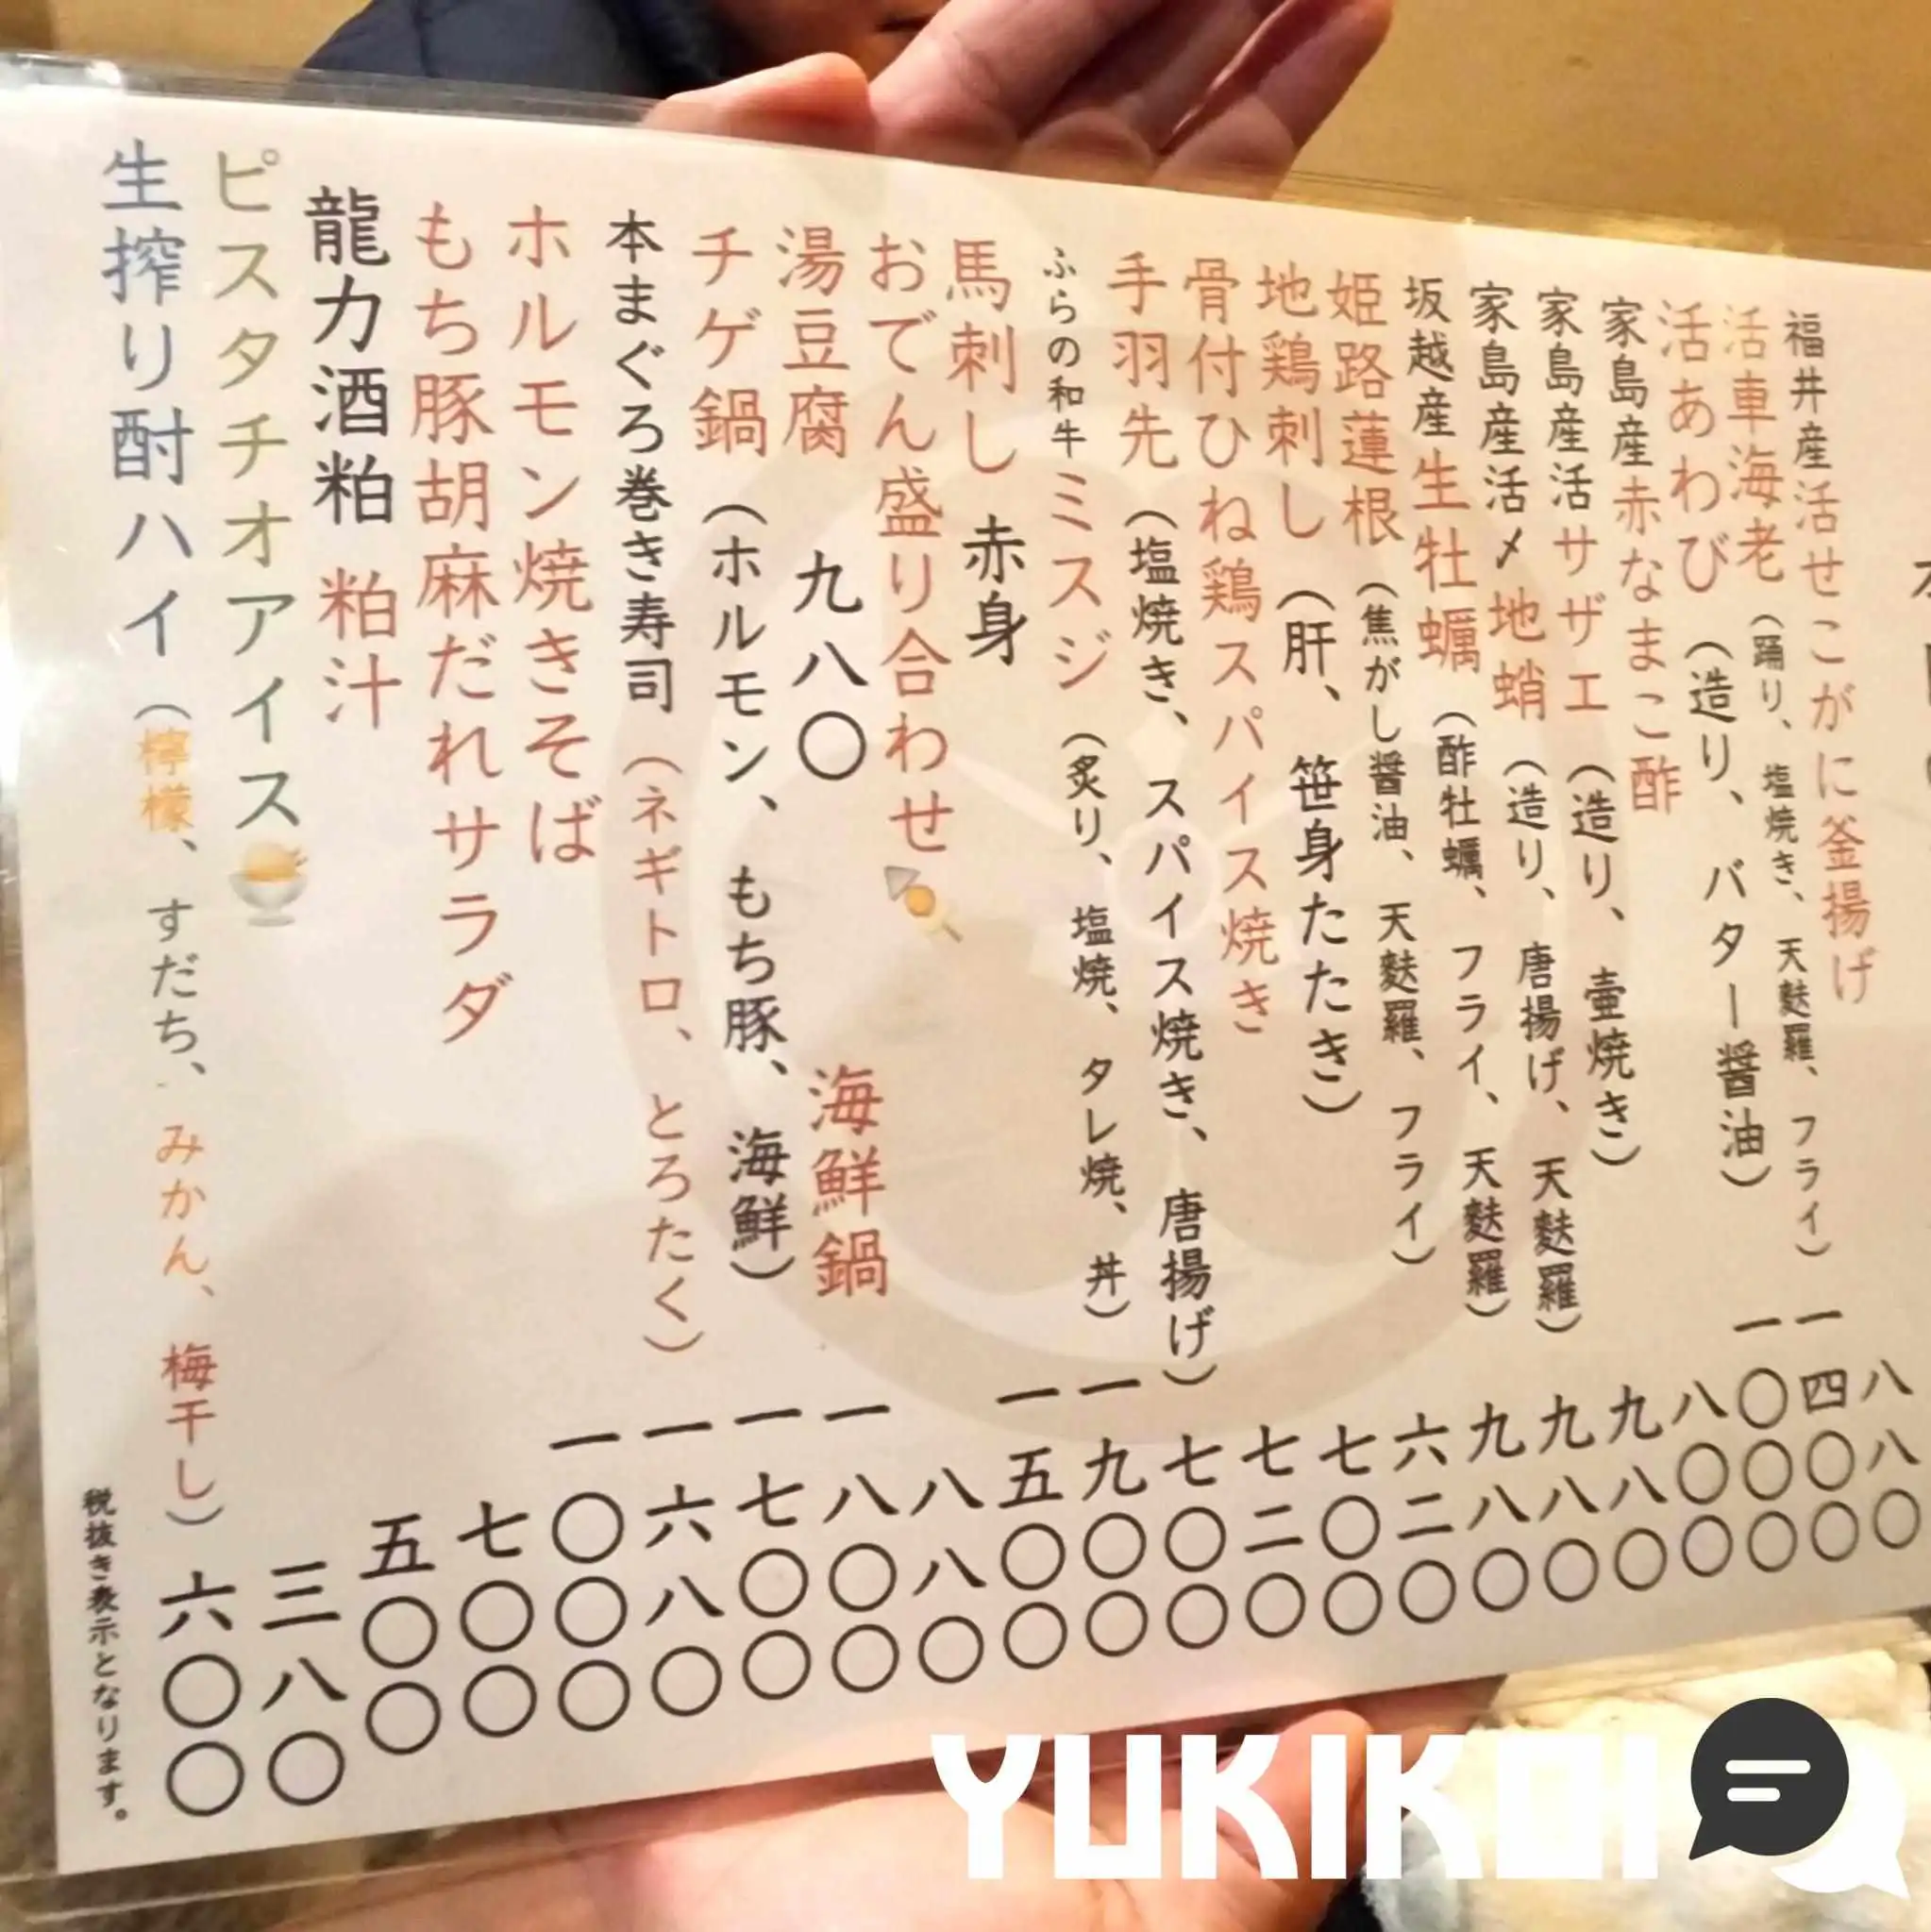 福井産活せこがに釜揚げ 八八〇
活車海老（踊り、塩焼き、天麩羅、フライ） 一四〇〇
活あわび（造り、バター醤油） 一〇〇〇
家島産赤なまこ酢 八〇〇
家島産活サザエ（造り、壷焼き） 九八〇
家島産活〆地蛸（造り、唐揚げ、天麩羅） 九八〇
坂越産生牡蠣（酢牡蠣、フライ、天麩羅） 九八〇
姫路蓮根（焦がし醤油、天麩羅、フライ） 六二〇
地鶏刺し（肝、笹身たたき） 七〇〇
骨付ひね鶏スパイス焼き 七二〇
手羽先（塩焼き、スパイス焼き、唐揚げ） 七〇〇
ふらの和牛ミスジ（炙り、塩焼、タレ焼、丼） 一九〇〇
馬刺し 赤身 一五〇〇
おでん盛り合わせ 八八〇
湯豆腐 九八〇 海鮮鍋 一八〇〇
チゲ鍋（ホルモン、もち豚、海鮮） 一七〇〇
本まぐろ巻き寿司（ネギトロ、とろたく） 一六八〇
ホルモン焼きそば 一〇〇〇
もち豚胡麻だれサラダ 七〇〇
龍力酒粕 粕汁 五〇〇
ピスタチオアイス 三八〇
生搾り酎ハイ（檸檬、すだち、みかん、梅干し） 六〇〇
税抜き表示となります。
YUKIKOI